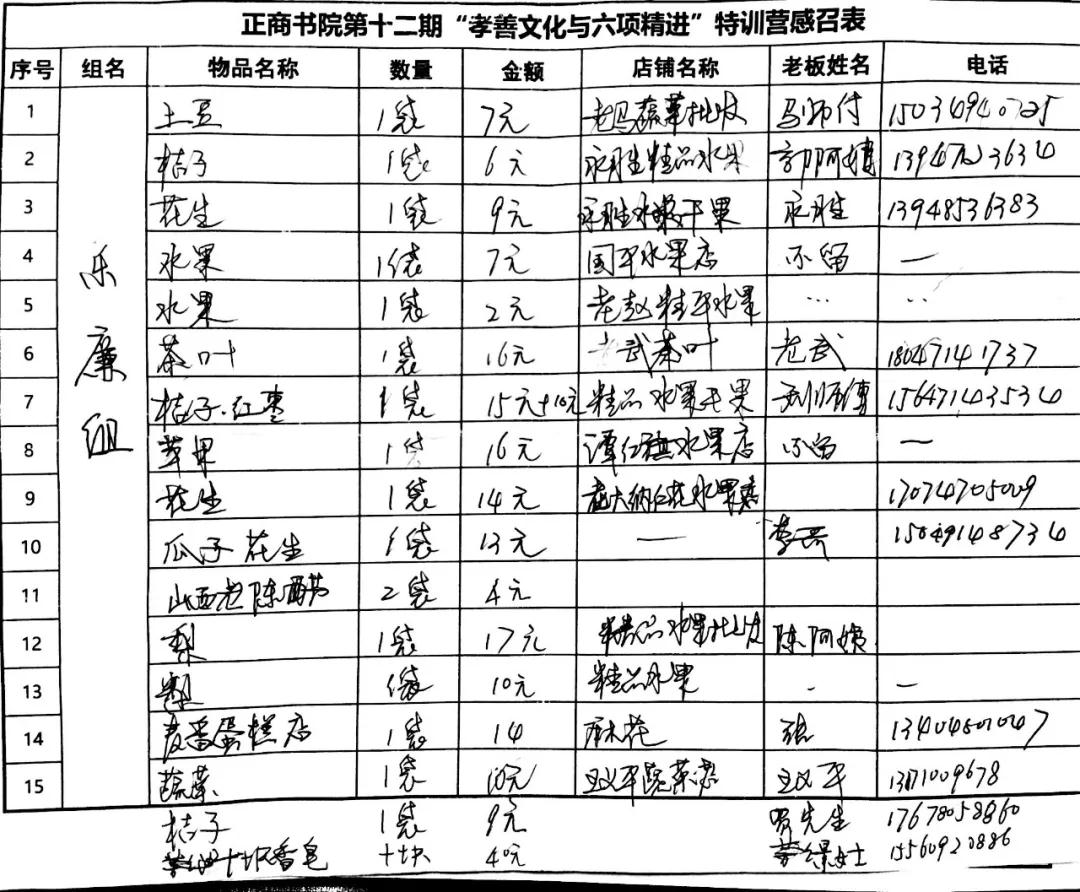 正商书院第十二期“孝善文化与六项精进”特训营感召表
序号 组名 物品名称 数量 金额 店铺名称 老板姓名 电话
乐廉组
1 土豆 1袋 7元 老马蔬菜批发 马师付 15034940725
2 桔子 1袋 6元 永胜精品水果 郭阿姨
3 花生 1袋 9元 永胜水果干果 永胜 13948536383
4 水果 1袋 7元 国平水果店 不留 —
5 水果 1袋 2元 老赵精平水果 … ..
6 茶叶 1袋 16元 老武茶叶 老武 18047141737
7 桔子.红枣 1袋 15元+10元 精品水果干果 15647143534
8 苹果 1袋 16元 谭红旗水果店 不留 —
9 花生 1袋 14元 水果店 17074705009
10 瓜子 花生 1袋 13元 — 李哥 15049148734
11 山西老陈醋 2袋 4元
12 梨 1袋 17元 精品水果批发 陈阿姨
13 梨 1袋 10元 精品水果 . —
14 麦香蛋糕店 1袋 14 麻花 张 13404501047
15 蔬菜 1袋 10元 王义平蔬菜店 王义平
桔子 1袋 9元 贾先生 17678058860
十块香皂 十块 40元 女士 15560920886